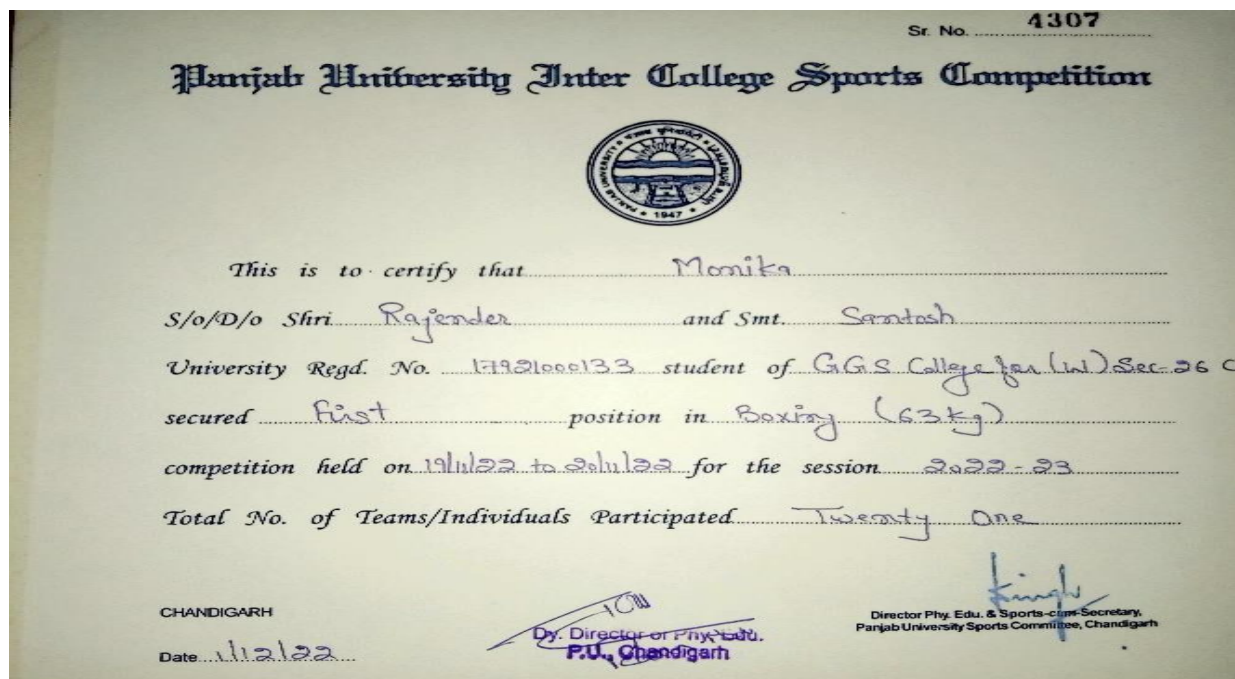 Sr. No. 4307
Panjab University Inter College Sports Competition
PANJAB UNIVERSITY
1947
This is to certify that Monika
S/o/D/o Shri Rajender and Smt. Santosh
University Regd. No. 17921000133 student of G.G.S College for (W) Sec-26 C
secured First position in Boxing (63kg)
competition held on 19/11/22 to 20/11/22 for the session 2022-23
Total No. of Teams/Individuals Participated Twenty One
CHANDIGARH
Date 1/12/22
Dy. Director of Phy. Edu.
P.U., Chandigarh
Director Phy. Edu. & Sports-cum-Secretary,
Panjab University Sports Committee, Chandigarh